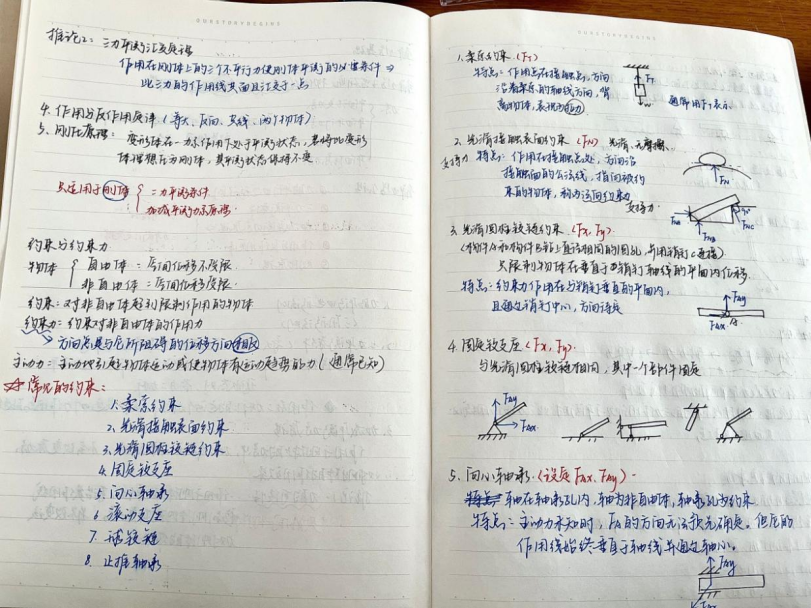 OURSTORYBEGINS
推论2：三力平衡汇交定理
作用在刚体上的三个不平行力使刚体平衡的必要条件 ⇒
此三力的作用线共面且汇交于一点
4. 作用与反作用定律（等大、反向、共线、两个物体）
5. 刚化原理：变形体在一力系作用下处于平衡状态，若将此变形
体刚化为刚体，其平衡状态保持不变
只适用于刚体 { 二力平衡条件
加减平衡力系原理
约束与约束力
物体 { 自由体：空间位移不受限
非自由体：空间位移受限
约束：对非自由体起到限制作用的物体
约束力：约束对非自由体的作用力
方向总是与它所阻碍的位移方向相反
主动力：主动地引起物体运动或使物体有运动趋势的力（通常已知）
☆常见的约束：
1. 柔索约束
2. 光滑接触表面约束
3. 光滑圆柱铰链约束
4. 固定铰支座
5. 向心轴承
6. 滚动支座
7. 球铰链
8. 止推轴承
OURSTORYBEGINS
1. 柔索约束（FT）
特点：作用点在接触点，方向
沿着柔索的轴线方向，背
离物体，表现为拉力
FT
W
通常用FT表示
2. 光滑接触表面约束（FN） 光滑、无摩擦
支持力 特点：作用在接触点处，方向沿
接触面的公法线，指向被约
束的物体，称为法向约束力
支持力
FN
FNA
FNB
FNC
3. 光滑圆柱铰链约束（Fx, Fy）
只限制物体在垂直于销钉轴线的平面内位移
特点：约束力作用在与销钉垂直的平面内，
且通过销钉中心，方向待定
FAy
FAx
A
4. 固定铰支座（Fx, Fy）
与光滑圆柱铰链相同，其中一个部件固定
FAy
FAx
5. 向心轴承（设定FAx, FAy）
轴在轴承孔内，轴为非自由体，轴承孔为约束
特点：主动力未知时，FA的方向无法预先确定，但它的
作用线始终垂直于轴线并通过轴心。
FAy